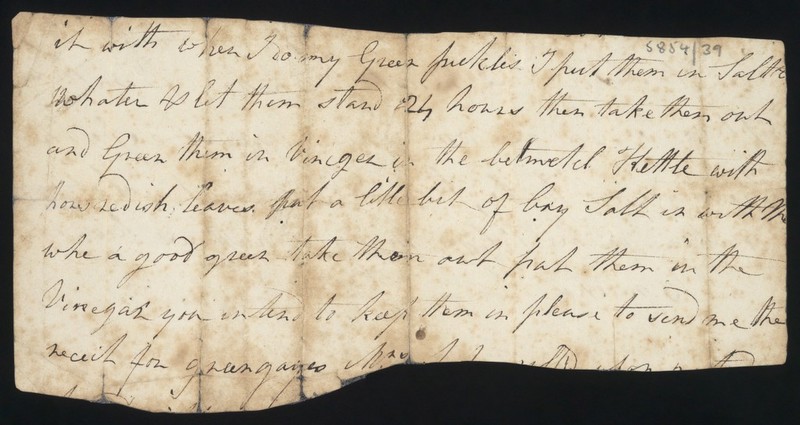 5854/39
it with when I do my Green pickles I put them in Salt &
whater & let them stand 24 hours then take them out
and Green them in Vineger in the belmetel Kettle with
horsredish leaves put a little bit of bay Salt in with the
whe a good green take them out put them in the
Vinegar you intend to keep them in please to send me the
receit for greengages Mrs